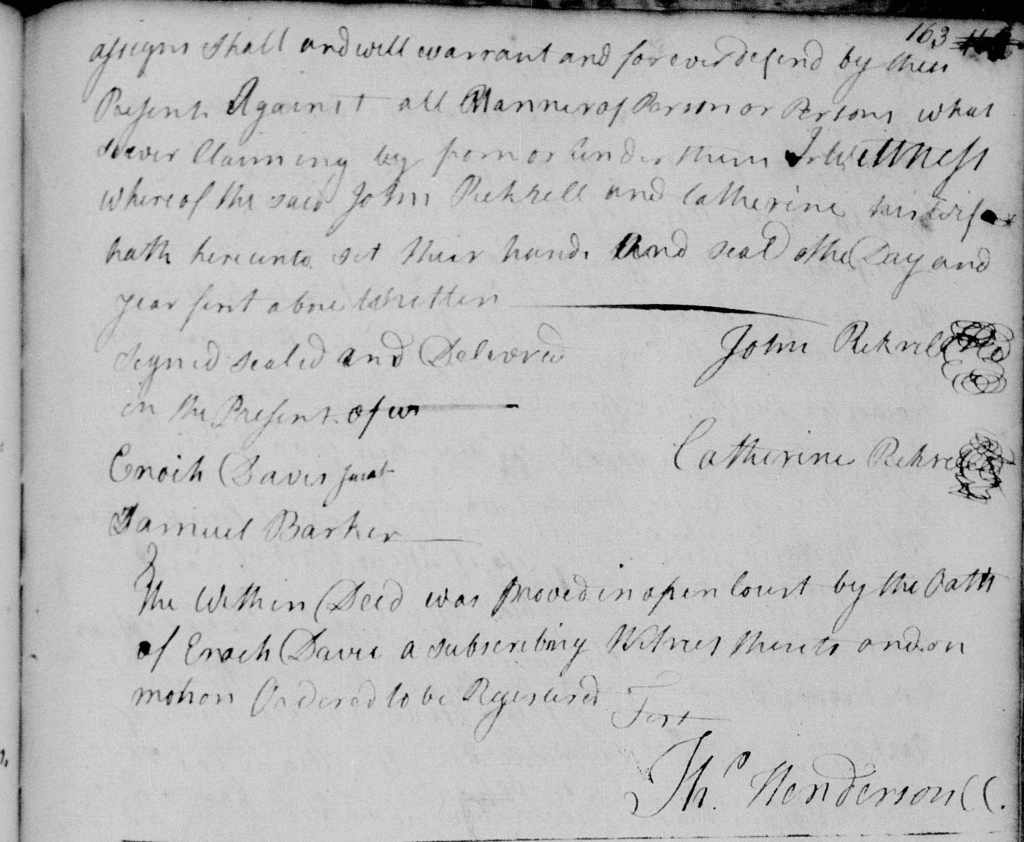 163
assigns shall and will warrant and forever defend by these
Present Against all Manner of Person or Persons what
soever Claiming by from or under them In Wittness
whereof the said John Pickrell and Catherine his wife
hath hereunto set their hands And seal the Day and
year first above Written
Signed sealed and Delivered
in the Present of us
John Pickrell
Catherine Pickrell
Enoch Davis Jurat
Samuel Barker
The Within Deed was proved in open Court by the Oath
of Enoch Davis a subscribing Witness thereto and on
motion Ordered to be Registered
Test
Tho. Henderson CC.